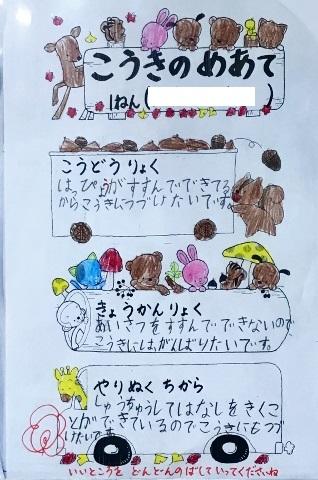 こうきのめあて
1ねん( )
こうどうりょく
はっぴょうがすすんでできてる
からこうきにつづけたいです。
きょうかんりょく
あいさつをすすんでできないので
こうきには、がんばりたいです。
やりぬくちから
しゅうちゅうしてはなしをきくこ
とができているのでこうきにもつづ
けたいです
いいところを どんどんのばしていってくださいね